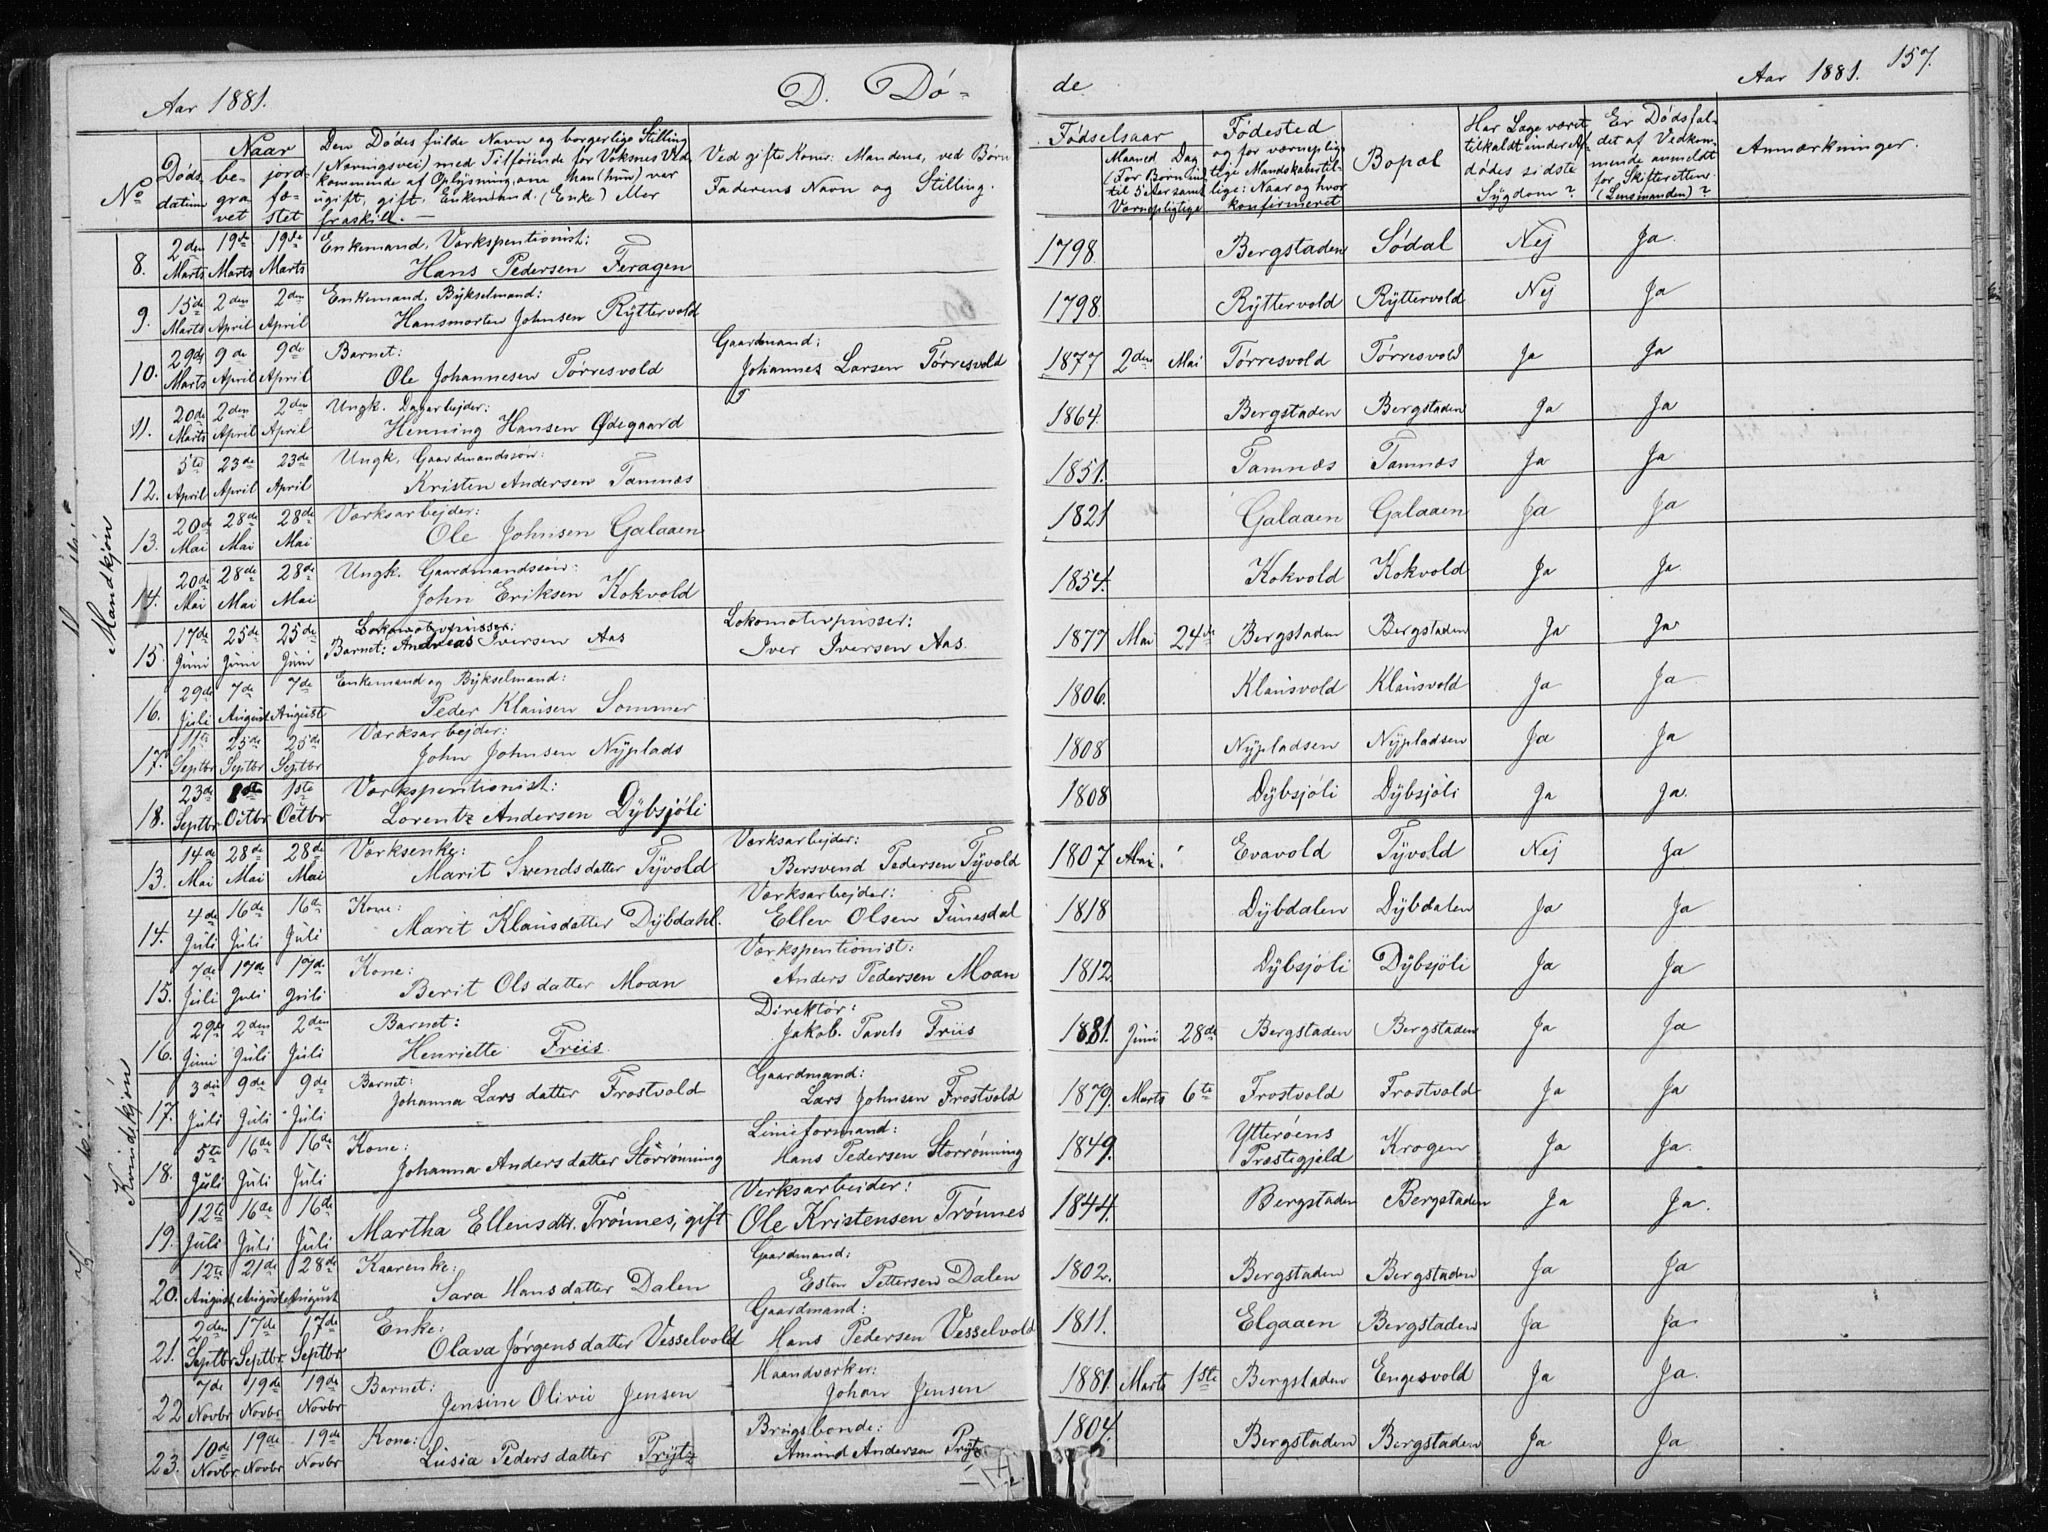 Aar 1881. D. Dö- de Aar 1881. 157.
No
Döds-
datum
Naar
be-
gra-
vet
jord-
fæ-
stet
Den Dödes fulde Navn og borgerlige Stilling
(Næringsvei) med Tilföiende for Voksnes Ved-
kommende af Oplysning, om Han (hun) var
ugift, gift, Enkemand, (Enke) eller
fraskilt. —
Ved gifte Koner: Mandens, ved Börn
Faderens Navn og Stilling.
Födselsaar
Maaned Dag
(For Börn ind-
til 5 Aar samt
Værnepligtige
Födested
og for værneplig-
tige Mandskaber til-
lige: Naar og hvor
konfirmeret
Bopæl
Har Læge været
tilkaldt under Af-
dödes sidste
Sygdom?
Er Dödsfal-
det af Vedkom-
mende anmeldt
for Skifteretten
(Lensmanden)?
Anmærkninger.
Mandkjön
8. 2den Marts 19de Marts 19de Marts Enkemand, Værkspentionist: Hans Pedersen Feragen 1798. Bergstaden Södal Nej Ja.
9. 15de Marts 2den April 2den April Enkemand, Bÿkselmand: Hansmorten Johnsen Rÿttervold 1798. Rÿttervold Rÿttervold Nej Ja
10. 29de Marts 9de April 9de April Barnet: Ole Johannesen Törresvold Gaardmand: Johannes Larsen Törresvold 1877 2den Mai Törresvold Törresvold Ja Ja
11. 20de Marts 2den April 2den April Ungk. Dagarbejder: Henning Hansen Ødegaard 1864. Bergstaden Bergstaden Ja Ja
12. 5te April 23de April 23de April Ungk, Gaardmandssön: Kristen Andersen Tamnæs 1851. Tamnæs Tamnæs Ja Ja
13. 20de Mai 28de Mai 28de Mai Værksarbejder: Ole Johnsen Galaaen 1821 Galaaen Galaaen Ja Ja
14. 20de Mai 28de Mai 28de Mai Ungk. Gaardmandssön: John Eriksen Kokvold 1854. Kokvold Kokvold Ja Ja
15. 17de Juni 25de Juni 25de Juni Lokomotivpusser: Barnet: Andreas Iversen Aas Lokomotivpusser: Iver Iversen Aas. 1877 Mai 24de Bergstaden Bergstaden Ja Ja
16. 29de Juli 7de August 7de August Enkemand og Bÿkselmand: Peder Klausen Sommer 1806. Klausvold Klausvold Ja Ja
17. 11te Septbr 25de Septbr 25de Septbr Værksarbejder: John Johnsen Nÿplads 1808 Nÿpladsen Nÿpladsen Ja Ja
18. 23de Septbr 1ste Octbr 1ste Octbr Værkspentionist: Lorentz Andersen Dÿbsjöli 1808 Dÿbsjöli Dÿbsjöli Ja Ja.
Kvindkjön
13. 14de Mai 28de Mai 28de Mai Værksenke: Marit Svendsdatter Tÿvold Værksarbejder: Bersvend Pedersen Tÿvold 1807 Mai. Evavold Tÿvold Nej Ja
14. 4de Juli 16de Juli 16de Juli Kone: Marit Klausdatter Dÿbdahl. Værksarbejder: Ellev Olsen Funesdal 1818 Dÿbdalen Dÿbdalen Ja Ja
15. 7de Juli 17de Juli 17de Juli Kone: Berit Olsdatter Moan Værkspentionist: Anders Pedersen Moan 1812. Dÿbsjöli Dÿbsjöli Ja Ja
16. 29de Juni 2den Juli 2den Juli Barnet: Henriette Friis. Direktör: Jakob Pavels Friis 1881. Juni 28de Bergstaden Bergstaden Ja Ja
17. 3die Juli 9de Juli 9de Juli Barnet: Johanna Larsdatter Frostvold Gaardmand: Lars Johnsen Frostvold 1879. Marts 6te Frostvold Frostvold Ja Ja
18. 5te Juli 16de Juli 16de Juli Kone: Johanna Andersdatter Storrönning Linieformand: Hans Pedersen Storrönning 1849. Ytteröens Præstegjeld Krogen Ja Ja.
19. 12te Juli 16de Juli 16de Juli Martha Ellensdtr. Trönnes, gift Verksarbeider: Ole Kristensen Trönnes 1844. Bergstaden Bergstaden Ja Ja.
20. 12te August 21de August 28de August Kaarenke: Sara Hansdatter Dalen Gaardmand: Esten Pettersen Dalen 1802. Bergstaden Bergstaden Ja Ja
21. 2den Septbr 17de Septbr. 17de Septbr Enke: Olava Jörgensdatter Vesselvold Gaardmand: Hans Pedersen Vesselvold 1811. Elgaaen Bergstaden Ja Ja
22 7de Novbr 19de Novbr 19de Novbr Barnet: Jensine Olivie Jensen Haandværker: Johan Jensen 1881. Marts 1ste Bergstaden Engesvold Ja Ja.
23. 10de Novbr 19de Novbr 19de Novbr Kone: Lusia Pedersdatter Prÿtz Brugsbonde: Amund Andersen Prÿtz 1804. Bergstaden Bergstaden Ja Ja